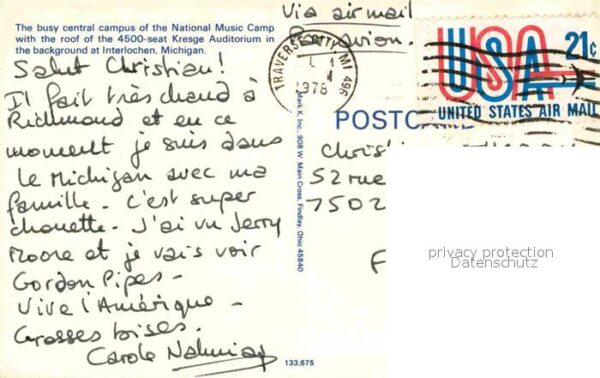 The busy central campus of the National Music Camp
with the roof of the 4500-seat Kresge Auditorium in
the background at Interlochen, Michigan.
Salut Christian!
Il fait très chaud à
Richmond et en ce
moment je suis dans
le Michigan avec ma
famille. C'est super
chouette. J'ai vu Jerry
Moore et je vais voir
Gordon Pipes.
Vive l'Amérique.
Grosses bises.
Carole
133.675
Mark K, Inc. 908 W. Main Cross, Findlay, Ohio 45840
Via air mail
Par avion.
TRAVERSE CITY MI 496
1976
USA 21c
UNITED STATES AIR MAIL
POSTCARD
Christian
52 rue
7502
F
privacy protection
Datenschutz